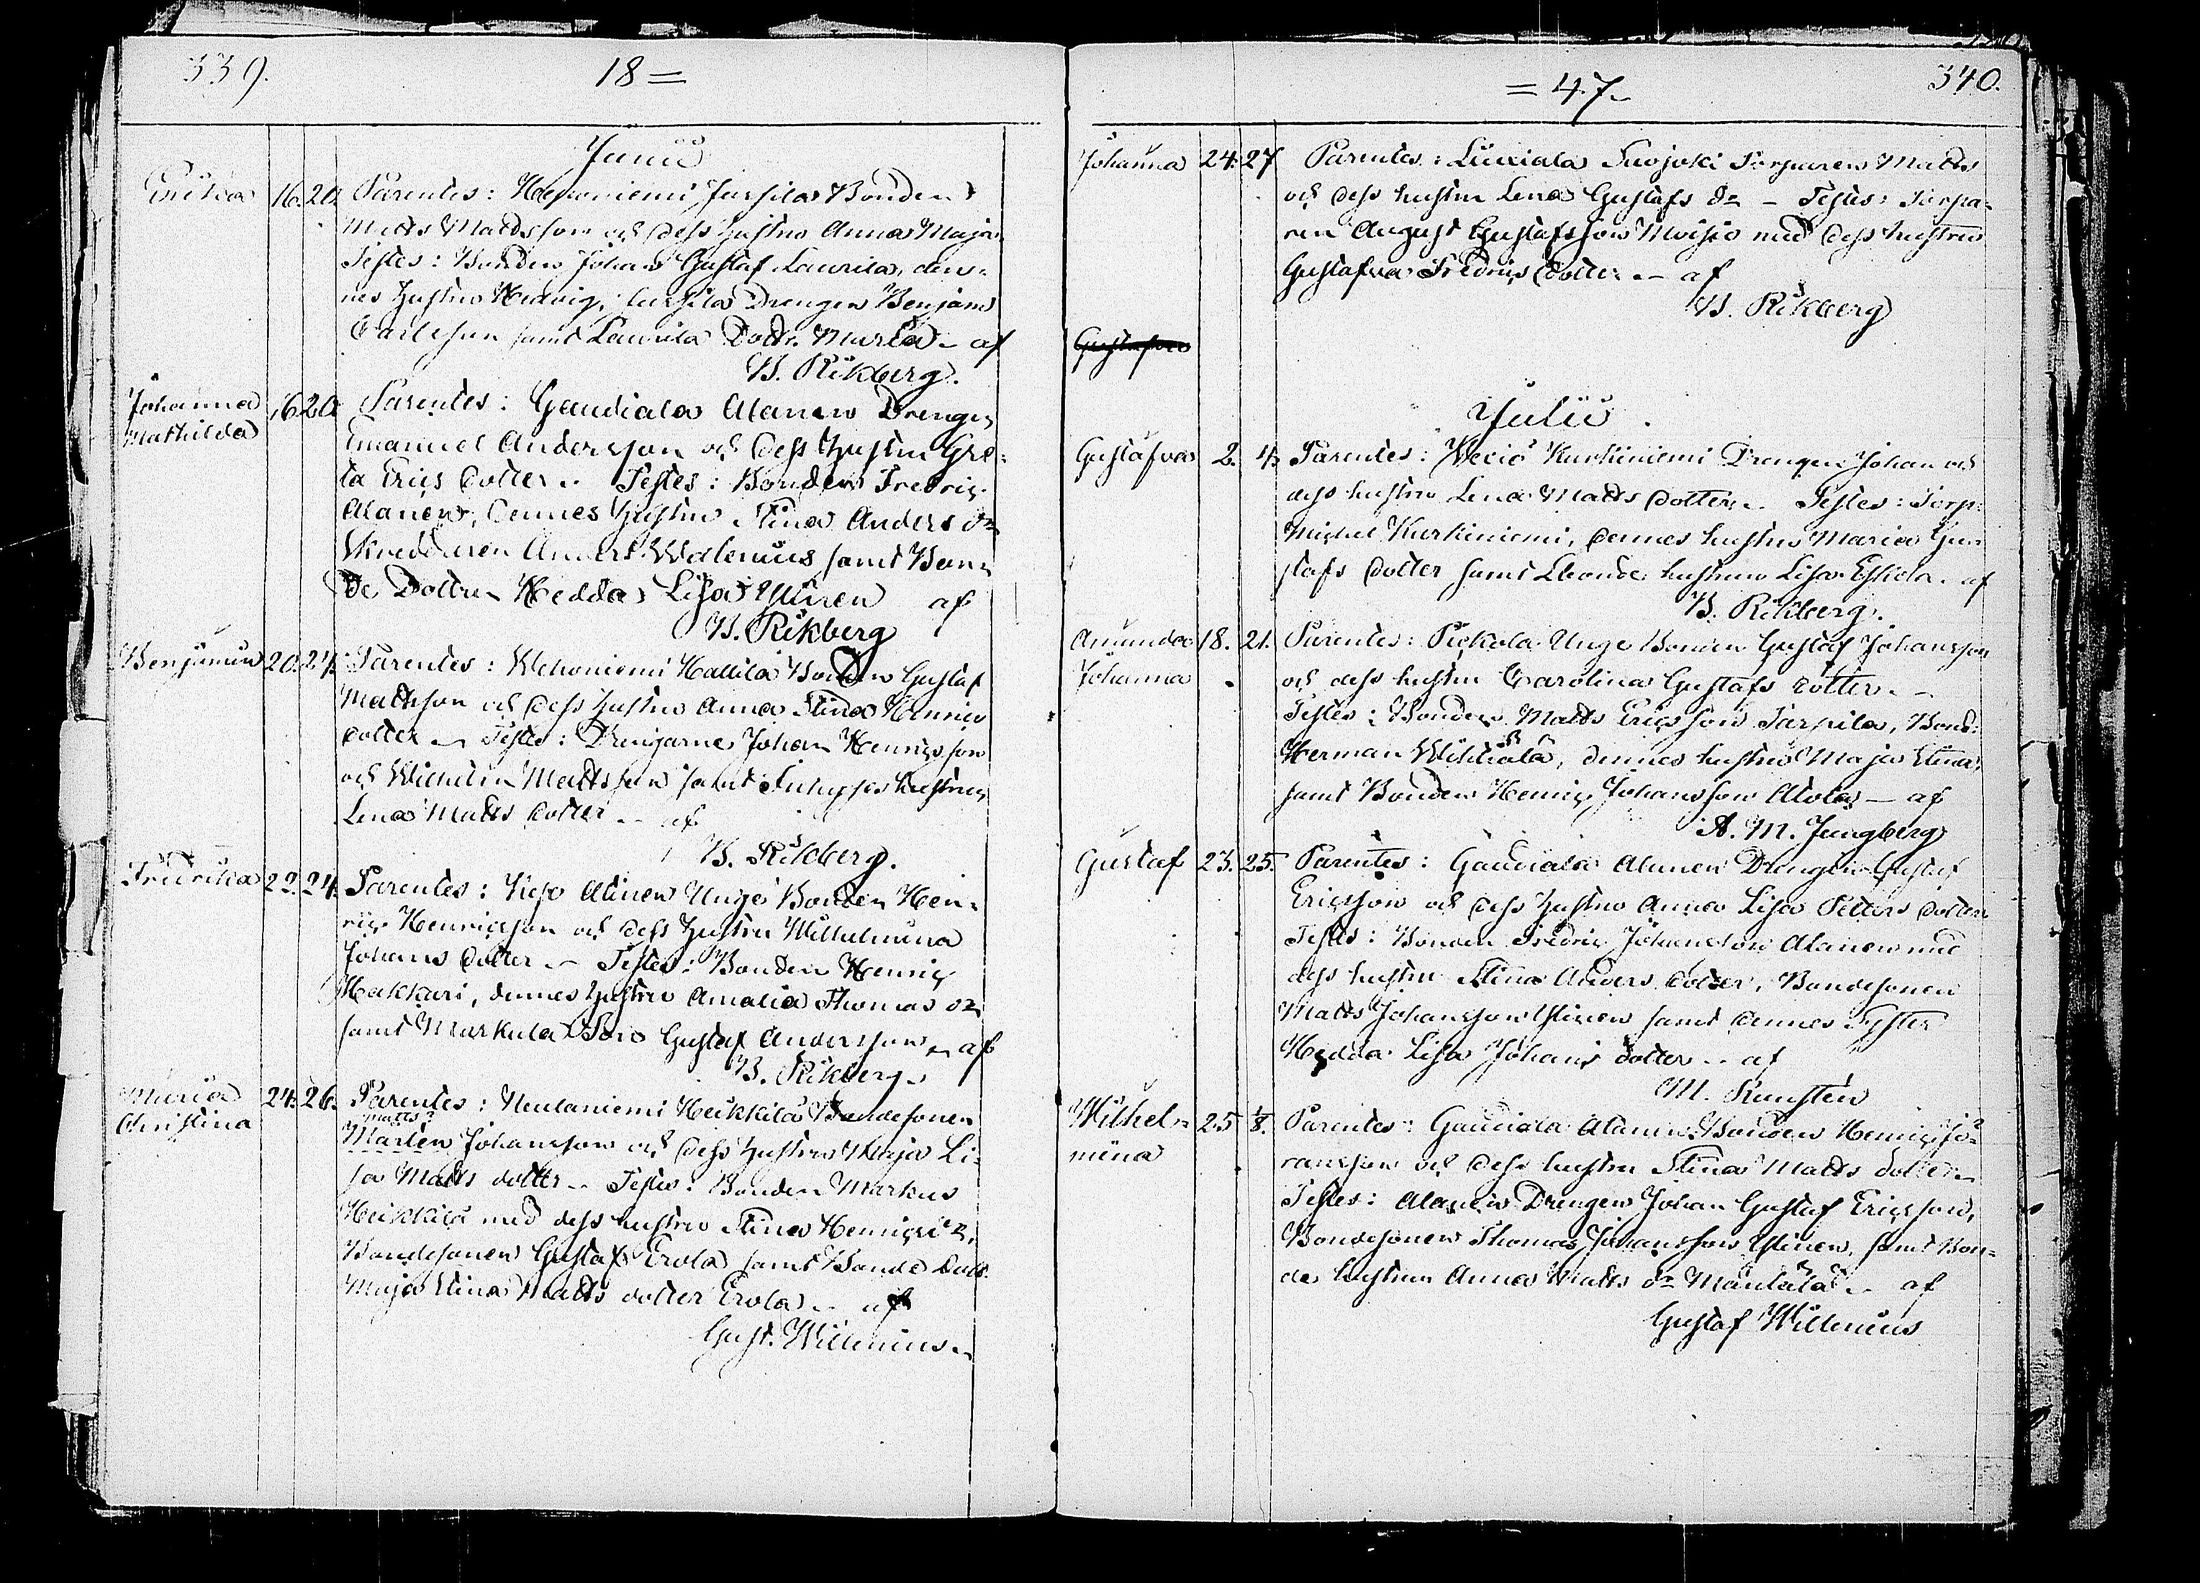 339.
18=
Junii
Erika 16. 20. Parentes: Heponiemi Jussila Bonden
Matts Mattsson och dess hustru Anna Maja
Testes: Bonden Johan Gustaf Laurila, den-
nes hustru Hedvig, Jussila Drengen Benjam
Carlsson samt Laurila Dottr. Maria – af
B. Rikberg.
Johanna 16. 20. Parentes: Gaudiala Alanen Drengen
Mathilda
Emanuel Andersson och dess hustru Gre-
ta Erics dotter. Testes: Bonden Fredric
Alanen, dennes hustru Stina Anders dr
Skreddaren Anders Walenius samt Bon-
de Dottren Hedda Lisa Ylinen af
B. Rikberg
Benjamin 20. 24. Parentes: Wehoniemi Hallila Bonden Gustaf
Mattsson och dess hustru Anna Stina Henrics
dotter – Testes: Drengarne Johan Henricsson
och Wilhelm Mattsson samt hustrun
Lena Matts dotter – af
B. Rikberg.
Fredrika 22. 24. Parentes: Alinen Unge Bonden Hen-
ric Henricsson och dess hustru Wilhelmina
Johans dotter – Testes: Bonden Henric
Hakkari, dennes hustru Amalia Thomas dr
samt Markula Son Gustaf Andersson – af
B. Rikberg
Maria 24. 26. Parentes: Neulaniemi Heikkilä Bondesonen
Christina
Matts
Marten Johansson och dess hustru Maja Li-
sa Matts dotter – Testes: Bonden Markus
Heikkilä med dess hustru Stina Henrics dr,
Bondesonen Gustaf Erola samt Bonde Dott.
Maja Stina Matts dotter Erola – af
Gust. Willenius
=47
340.
Johanna 24. 27 Parentes: Luuiala Suojoki Torparen Matts
och dess hustru Lena Gustafs dr – Testes: Torpa-
ren August Gustafsson Moisio med dess hustru
Gustafva Fredrics dotter – af
B. Rikberg
Gustafva
Julii
Gustafva 2. 4. Parentes: Wexiö Kurkiniemi Drengen Johan och
dess hustru Lena Matts dotter – Testes: Torp.
Michel Kurkiniemi, dennes hustru Maria Gu-
stafs dotter samt Bonde hustrun Lisa Eskola – af
B. Rikberg.
Amanda 18. 21. Parentes: Unge Bonden Gustaf Johansson
Johanna
och dess hustru Carolina Gustafs dotter –
Testes: Bonden Matts Ericsson Tarpila, Bond:
Herman Wihtiälä, dennes hustru Maja Stina,
samt Bonden Henric Johansson Alola – af
A. M. Jungberg
Gustaf 23. 25. Parentes: Gaudiala Alanen Drengen Gustaf
Ericsson och dess hustru Anna Lisa Petters dotter
Testes: Bonden Fredric Johansson Alanen med
dess hustru Stina Anders dotter, Bondesonen
Matts Johansson Ylinen samt dennes Syster
Hedda Lisa Johans dotter – af
M. Runsten
Wilhel- 25 1/8. Parentes: Gaudiala Alanen Bonden Henric Jö-
mina
ransson och dess hustru Stina Matts dotter –
Testes: Alanen Drengen Johan Gustaf Ericsson,
Bondesonen Thomas Johansson Ylinen, samt Bon-
de hustrun Anna Matts dr Mäntälä – af
Gustaf Willenius